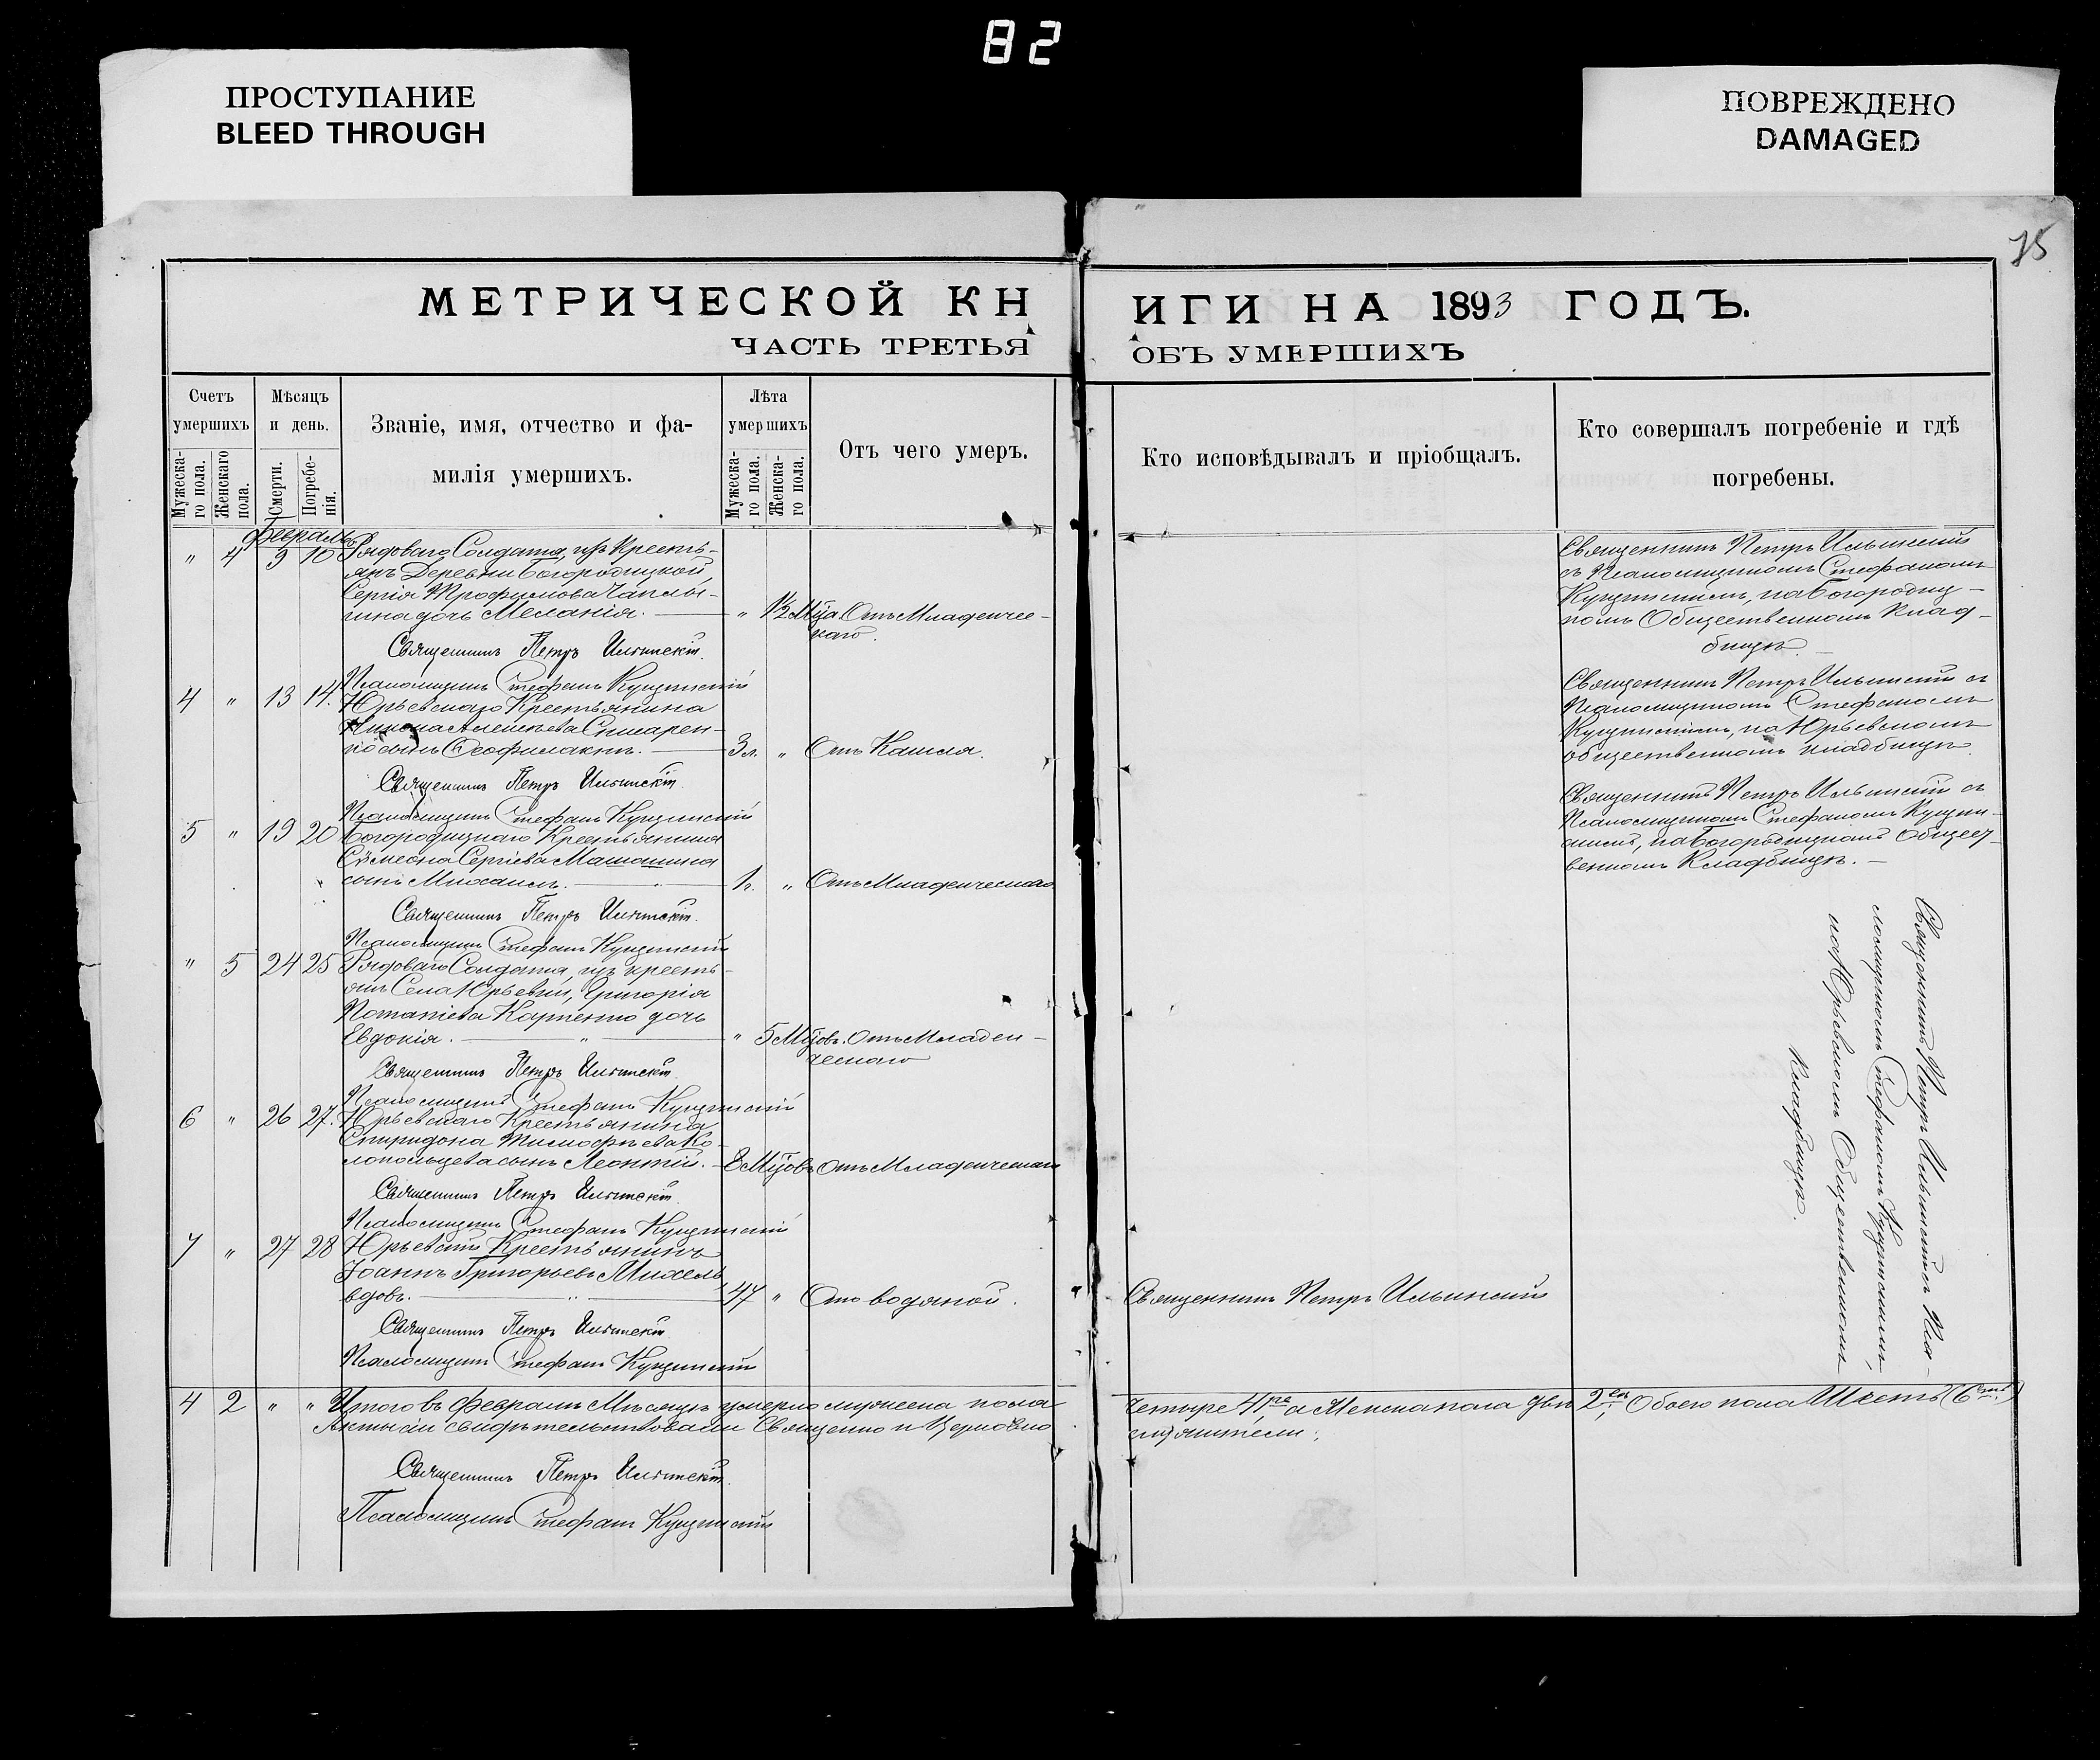 82
ПРОСТУПАНИЕ
BLEED THROUGH
ПОВРЕЖДЕНО
DAMAGED
75
МЕТРИЧЕСКОЙ КН
ИГИ НА 1893 ГОДЪ.
ЧАСТЬ ТРЕТЬЯ
ОБЪ УМЕРШИХЪ
Счетъ умершихъ
Мужеска-го пола.
Женскаго пола.
Мѣсяцъ и день.
Смерти.
Погребе-нія.
Званіе, имя, отчество и фа-
милія умершихъ.
Лѣта умершихъ
Мужеска-го пола.
Женска-го пола.
Отъ чего умеръ.
Кто исповѣдывалъ и пріобщалъ.
Кто совершалъ погребеніе и гдѣ
погребены.
Февраль
" 4 9 10 Рядоваго Солдата, изъ Кресть-
янъ Деревни Богородицкой
Сергія Трофимова Чаплы-
гина дочь Меланія. " 1½ Мца Отъ Младенче-
скаго.
Священникъ Петръ Ильинскій.
Псаломщикъ Стефанъ
Священникъ Петръ Ильинскій
съ Псаломщикомъ Стефаномъ
на Богородиц-
комъ Общественномъ Клад-
бищѣ.
4 " 13 14. Юрьевскаго Крестьянина
сынъ Феофилактъ. 3 л. " Отъ Кашля.
Священникъ Петръ Ильинскій
Псаломщикъ Стефанъ
Священникъ Петръ Ильинскій съ
Псаломщикомъ Стефаномъ
на Юрьевскомъ
общественномъ кладбищѣ.
5 " 19 20 Богородицкаго Крестьянина
Сѵмеона Сергіева Машошина
сынъ Михаилъ. 1 г. " Отъ Младенческаго
Священникъ Петръ Ильинскій.
Псаломщикъ Стефанъ
Священникъ Петръ Ильинскій съ
Псаломщикомъ Стефаномъ
на Богородицкомъ Общест-
венномъ Кладбищѣ.
" 5 24 25 Рядоваго Солдата, изъ кресть-
янъ Села Юрьевки, Григорія
Потапіева Карпенко дочь
Евдокія. " " 5 Мцовъ. Отъ Младен-
ческаго
Священникъ Петръ Ильинскій.
Псаломщикъ Стефанъ
6 " 26 27. Юрьевскаго Крестьянина
Спиридона Тимофѣева Ко-
локольцева сынъ Леонтій. 8 Мцовъ Отъ Младенческаго
Священникъ Петръ Ильинскій.
Псаломщикъ Стефанъ
7 " 27 28 Юрьевскій Крестьянинъ
Іоаннъ Григорьевъ Михель
вдовъ. 47 " Отъ водяной.
Священникъ Петръ Ильинскій
Священникъ Петръ Ильинскій
Псаломщикъ Стефанъ
Священникъ Петръ Ильинскій съ Пса-
ломщикомъ Стефаномъ
на Юрьевскомъ Общественномъ
Кладбищѣ.
4 2 " " Итого въ Февралѣ Мѣсяцѣ умерло мужеска пола
четыре 4, а Женска пола двѣ 2, Обоего пола Шесть (6)
Акты сіи свидѣтельствовали Священно и Церковно
служители:
Священникъ Петръ Ильинскій.
Псаломщикъ Стефанъ